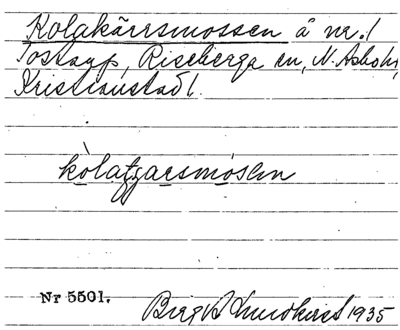 Kolakärrsmossen å nr. 1
Tostarp, Riseberga sn, N. Åsbo hd,
Kristianstad l.
kòlaʧarsmòsən
Nr 5501.
Birg. B. Lundkvist 1935